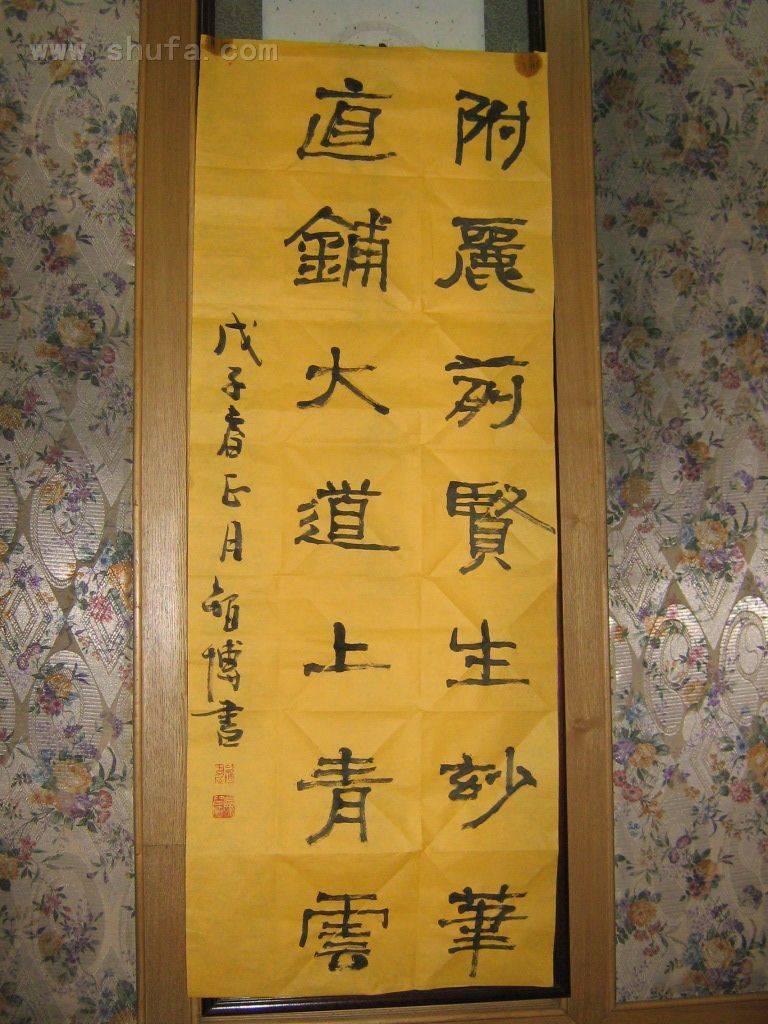 www.shufa.com
附麗前賢生妙筆
直鋪大道上青雲
戊子春正月 博書